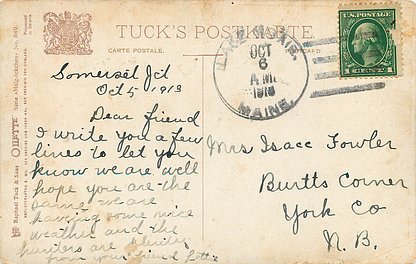 TUCK'S POSTCARD
CARTE POSTALE.
Somerset Jct
Oct 5, 1913
Dear friend
I write you a few
lines to let you
know we are well
hope you are the
same we are
having some nice
weather and the
hunters are plenty
from your friend
OCT
6
A.M.
1913
MAINE.
U.S. POSTAGE
1 CENT 1
Mrs Isacc Fowler
Burtts Corner
York Co
N.B.
Raphael Tuck & Sons OILETTE